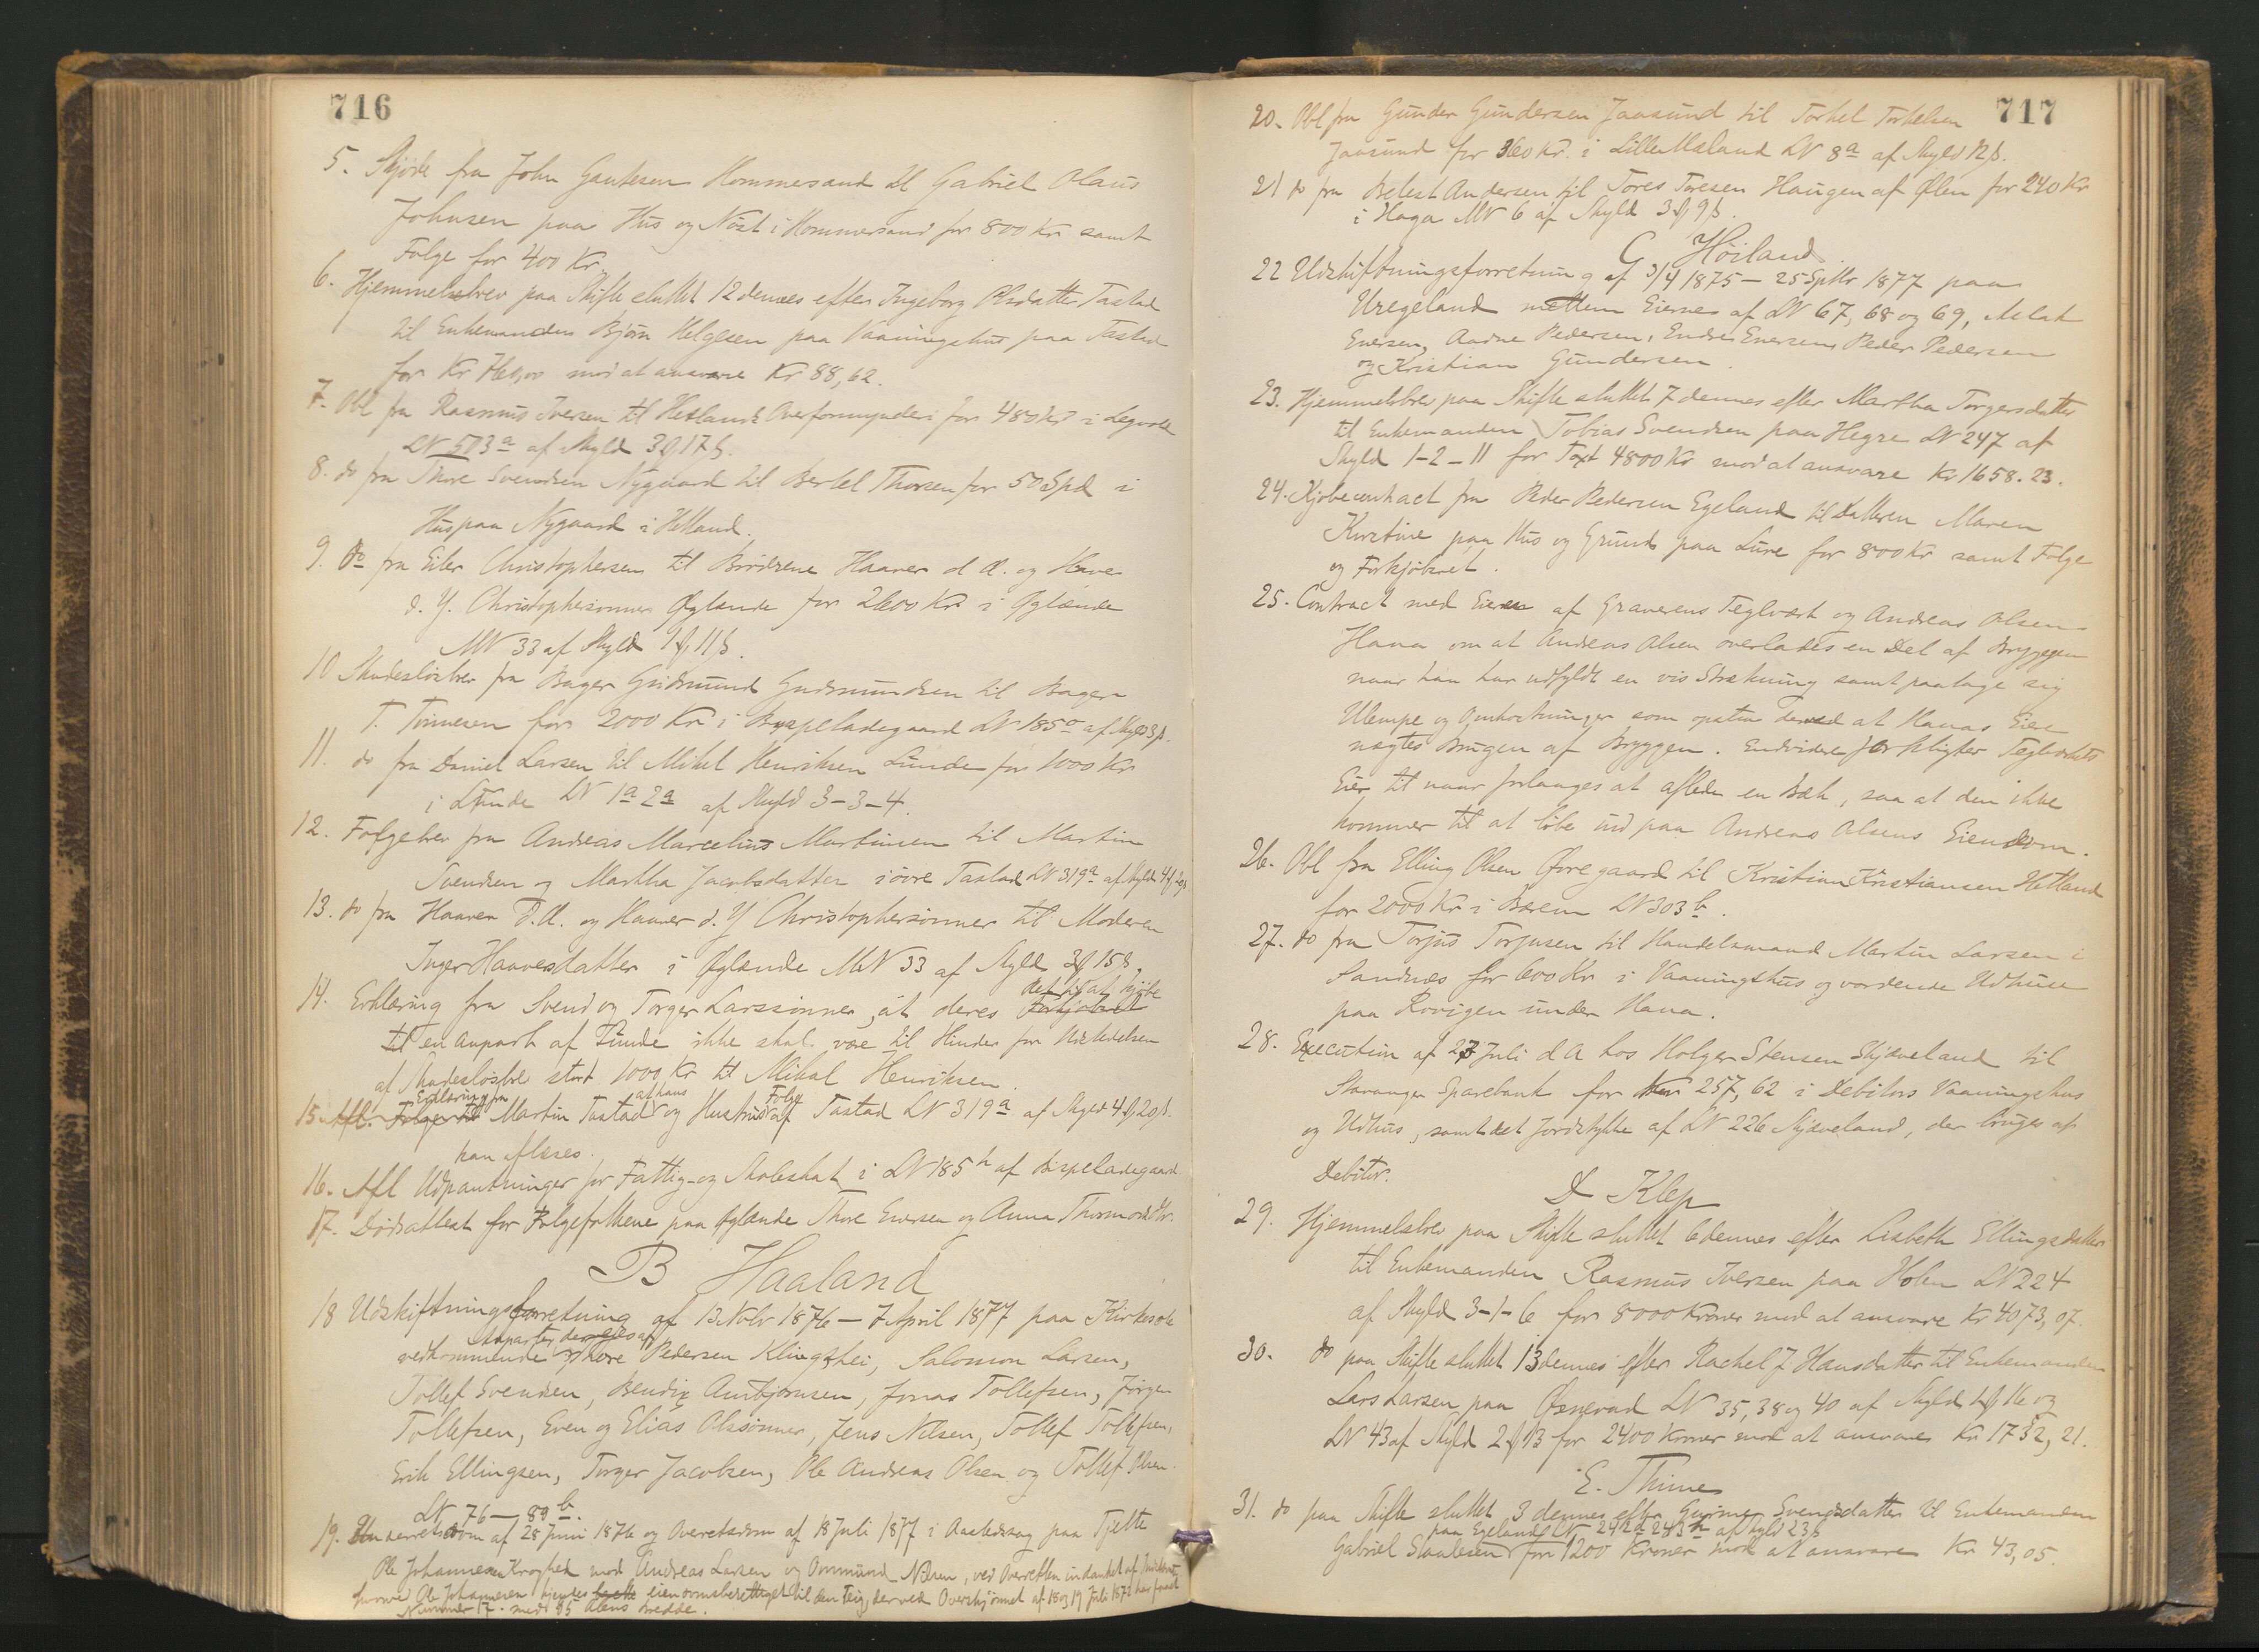 716
5. Skjøde fra John Gautesen Hommersand til Gabriel Olaus
Johnsen paa Hus og Nøst i Hommersand for 800 Kr samt
Folge for 400 Kr.
6. Hjemmelsbrev paa Skifte sluttet 12 dennes efter Ingeborg Olsdatter Tastad
til Enkemanden Bjørn Helgesen paa Vaaningshus paa Tastad
for Kr mod at ansvare Kr 88,62.
7. Obl fra Rasmus Iversen til Hetlands Overformynderi for 480 Kr i
LN 503a af Skyld 3 17 ß.
8. do fra Thore Svendsen Nygaard til Bertel Thorsen for 50 Spd i
Hus paa Nygaard i Hetland.
9. do fra Eiler Christophersen til Brødrene Haaver d. Æ. og Haaver
d. Y. Christophersønner Øglænde for 2600 Kr i Øglænde
MN 33 af Skyld 11 ß.
10 Skadesløsbrev fra Bager Gudmund Gudmundsen til Bager
T. Tønnesen for 2000 Kr i Bispeladegaard LN 185o af Skyld 3 ß.
11. do fra Daniel Larsen til Mikal Henriksen Lunde for 1000 Kr
i Lunde LN 1a 2a af Skyld 3-3-4.
12. Folgebrev fra Andreas Marcelius Martinsen til Martin
Svendsen og Martha Jacobsdatter i øvre Tastad LN 319a af Skyld
13. do fra Haaver d. Æ. og Haaver d. Y Christophersønner til Moderen
Inger Haaversdatter i Øglænde MN 33 af Skyld 3 15 ß.
14. Erklæring fra Svend og Torger Larssønner, at deres Forkjøbsret
til en Anpart af Lunde ikke skal være til Hinder for Udstedelsen
af Skadesløsbrev stort 1000 Kr til Mikal Henriksen.
15 Afl. Folge til Erklæring fra Martin Tastad og Hustru at hans Folge af Tastad LN 319a af Skyld 4 20 ß.
kan aflæses.
16. Afl Udpantninger for Fattig- og Skoleskat i LN 185h af Bispeladegaard
17. Dødsattest for Folgefolkene paa Øglænde Thore Eversen og Anna Thormodsdtr.
B Haaland
18 Udskiftningsforretning af 13 Novbr 1876 - 7 April 1877 paa Kirkesole
vedkommende Anparter, der eies af Thore Pedersen Klingshei, Salomon Larsen,
Tollef Svendsen, Bendix Ambjørnsen, Jonas Tollefsen, Jørgen
Tollefsen, Even og Elias Olssønner, Jens Nilsen, Tollef Tollefsen,
Erik Ellingsen, Torger Jacobsen, Ole Andreas Olsen og Tollef Olsen.
LN 76 - 89b.
19. Underretsdom af 28 Juni 1876 og Overretsdom af 18 Juli 1877 i Aastedssag paa Tjelte
Ole Johannesen Kroghed mod Andreas Larsen og Ommund Nilsen, ved Overretten indanket af
hvorved Ole Johannesen kjendes eiendomsberettiget til den Teig, der ved Overskjønnet af 18 og 19 Juli 1872 har faaet
Nummer 17. med 85 Alens Bredde.
717
20. Obl fra Gunder Gundersen Jaasund til Torkel Torkelsen
Jaasund for 360 Kr. i Lille LN 8a af Skyld 12 ß.
21 do fra Belest Andersen til Tores Toresen Haugen af Ølen for 240 Kr
i Haga MN 6 af Skyld 3 9 ß.
C Høiland
22 Udskiftningsforretning af 3/4 1875 - 25 Sptbr 1877 paa
Uregeland mellem Eierne af LN 67, 68 og 69, Aslak
Eversen, Aadne Pedersen, Endre Eversen, Peder Pedersen
og Kristian Gundersen.
23. Hjemmelsbrev paa Skifte sluttet 7 dennes efter Martha Torgersdatter
til Enkemanden Tobias Svendsen paa Hegre LN 247 af
Skyld 1-2-11 for Taxt 4800 Kr mod at ansvare Kr 1658.23.
24. Kjøbecontract fra Peder Pedersen Egeland til Datteren Maren
Kirstine paa Hus og Grund paa Lure for 800 Kr samt Folge
og Forkjøbsret.
25. Contract med Eieren af Graverens Teglværk og Andreas Olsen
Hana om at Andreas Olsen overlades en Del af Bryggen
naar han har udfyldt en vis Strækning samt paatage sig
Ulempe og Omkostninger som opstaa derved at Hanas Eier
nægtes Brugen af Bryggen. Endvidere forpligter Teglværkets
Eier til naar forlanges at aflede en Bæk, saa at den ikke
kommer til at løbe ind paa Andreas Olsens Eiendom.
26. Obl fra Elling Olsen Øvregaard til Kristian Kristiansen Hetland
for 2000 Kr i Bærem LN 303b.
27. do fra Torjus Torjusen til Handelsmand Martin Larsen i
Sandnæs for 600 Kr i Vaaningshus og vordende Udhuse
paa Rovigen under Hana.
28. Execution af 27 Juli d A hos Holger Stensen Skjæveland til
Stavanger Sparebank for Kr 257,62 i Debitors Vaaningshus
og Udhus, samt det Jordstykke af LN 226 Skjæveland, der bruges af
Debitor.
D Klep
29. Hjemmelsbrev paa Skifte sluttet 6 dennes efter Lisbeth Ellingsdatter
til Enkemanden Rasmus Iversen paa Holen LN 224
af Skyld 3-1-6 for 8000 Kroner mod at ansvare Kr 4073,07.
30. do paa Skifte sluttet 13 dennes efter Rachel J Hansdatter til Enkemanden
Lars Larsen paa Øsnevad LN 35, 38 og 40 af Skyld 16 og
LN 43 af Skyld 2 13 for 2400 Kroner mod at ansvare Kr 1732,21.
E. Thime
31. do paa Skifte sluttet 3 dennes efter Svendsdatter til Enkemanden
paa Egeland LN 242a 243 af Skyld 23 ß
Gabriel Staalesen for 1200 Kroner mod at ansvare Kr 43,05.